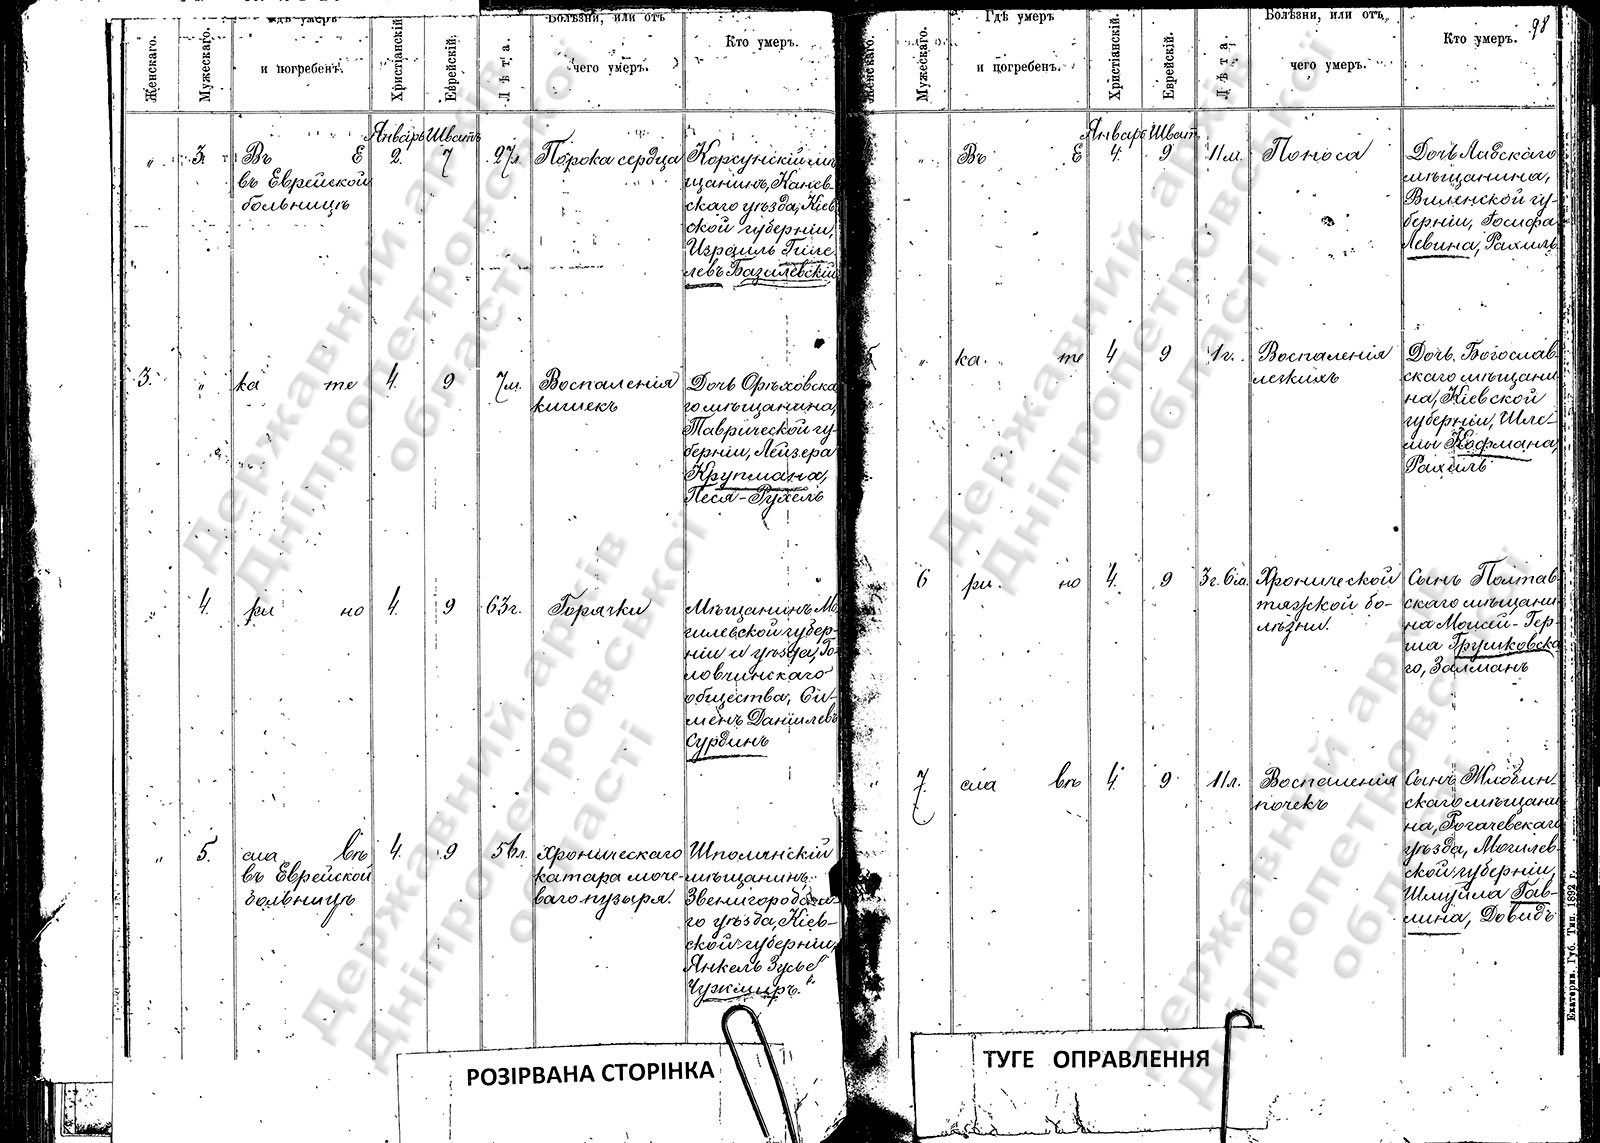 Женскаго.
Мужескаго.
Гдѣ умеръ
и погребенъ.
Христіанскій.
Еврейскій.
Лѣта.
Болѣзни, или отъ
чего умеръ.
Кто умеръ.
„ 3. Въ Е
въ Еврейской
больницѣ
Январь Шватъ
2. 7 27л. Порока сердца
Корсунскій мѣ-
щанинъ, Канев-
скаго уѣзда, Кіев
ской губерніи,
Израиль Гиле-
левъ Базилевскій
3. „ ка те 4. 9 7м. Воспаленія
кишекъ
Дочь Орѣховска
го мѣщанина,
Таврической гу-
берніи, Лейзера
Крупмана,
Песя-Рухель
„ 4. ри но 4. 9 63г. Горячки
Мѣщанинъ Мо
гилевской губер-
ніи и уѣзда, Го-
ловчинскаго
общества, Си-
менъ Даніилевъ
Сурдинъ
„ 5. сла въ 4. 9 56л. Хроническаго
въ Еврейской
больницѣ
катара моче-
ваго пузыря.
Шполянскій
мѣщанинъ
Звенигородска-
го уѣзда, Кіев-
ской губерніи,
Янкель Зусьев
Чужмиръ.
РОЗІРВАНА СТОРІНКА
98
Женскаго.
Мужескаго.
Гдѣ умеръ
и погребенъ.
Христіанскій.
Еврейскій.
Лѣта.
Болѣзни, или отъ
чего умеръ.
Кто умеръ.
Январь Шват
„ Въ Е 4. 9 11м. Поноса
Дочь Лидскаго
мѣщанина,
Виленской гу-
берніи, Іосифа
Левина, Рахиль
5 „ ка те 4 9 1г. Воспаленія
легкихъ
Дочь Богослав-
скаго мѣщани
на, Кіевской
губерніи, Шле-
мы Кофмана,
Рахиль
6 ри но 4. 9 3г.6м. Хронической
тяжкой бо-
лѣзни.
Сынъ Полтав-
скаго мѣщани-
на Моисей-Гер-
ша Грушковска
го, Залманъ
„ 7. сла въ 4. 9 11л. Воспаленія
почекъ
Сынъ Жлобин-
скаго мѣщани
на, Рогачевскаго
уѣзда, Могилев-
ской губерніи,
Шмуйла Гав-
лина, Довидъ
Екатерин. Губ. Тип. 1892 г.
ТУГЕ ОПРАВЛЕННЯ
Державний архів
Дніпропетровської
області
Державний архів
Дніпропетровської
області
Державний архів
Дніпропетровської
області
Державний архів
Дніпропетровської
області